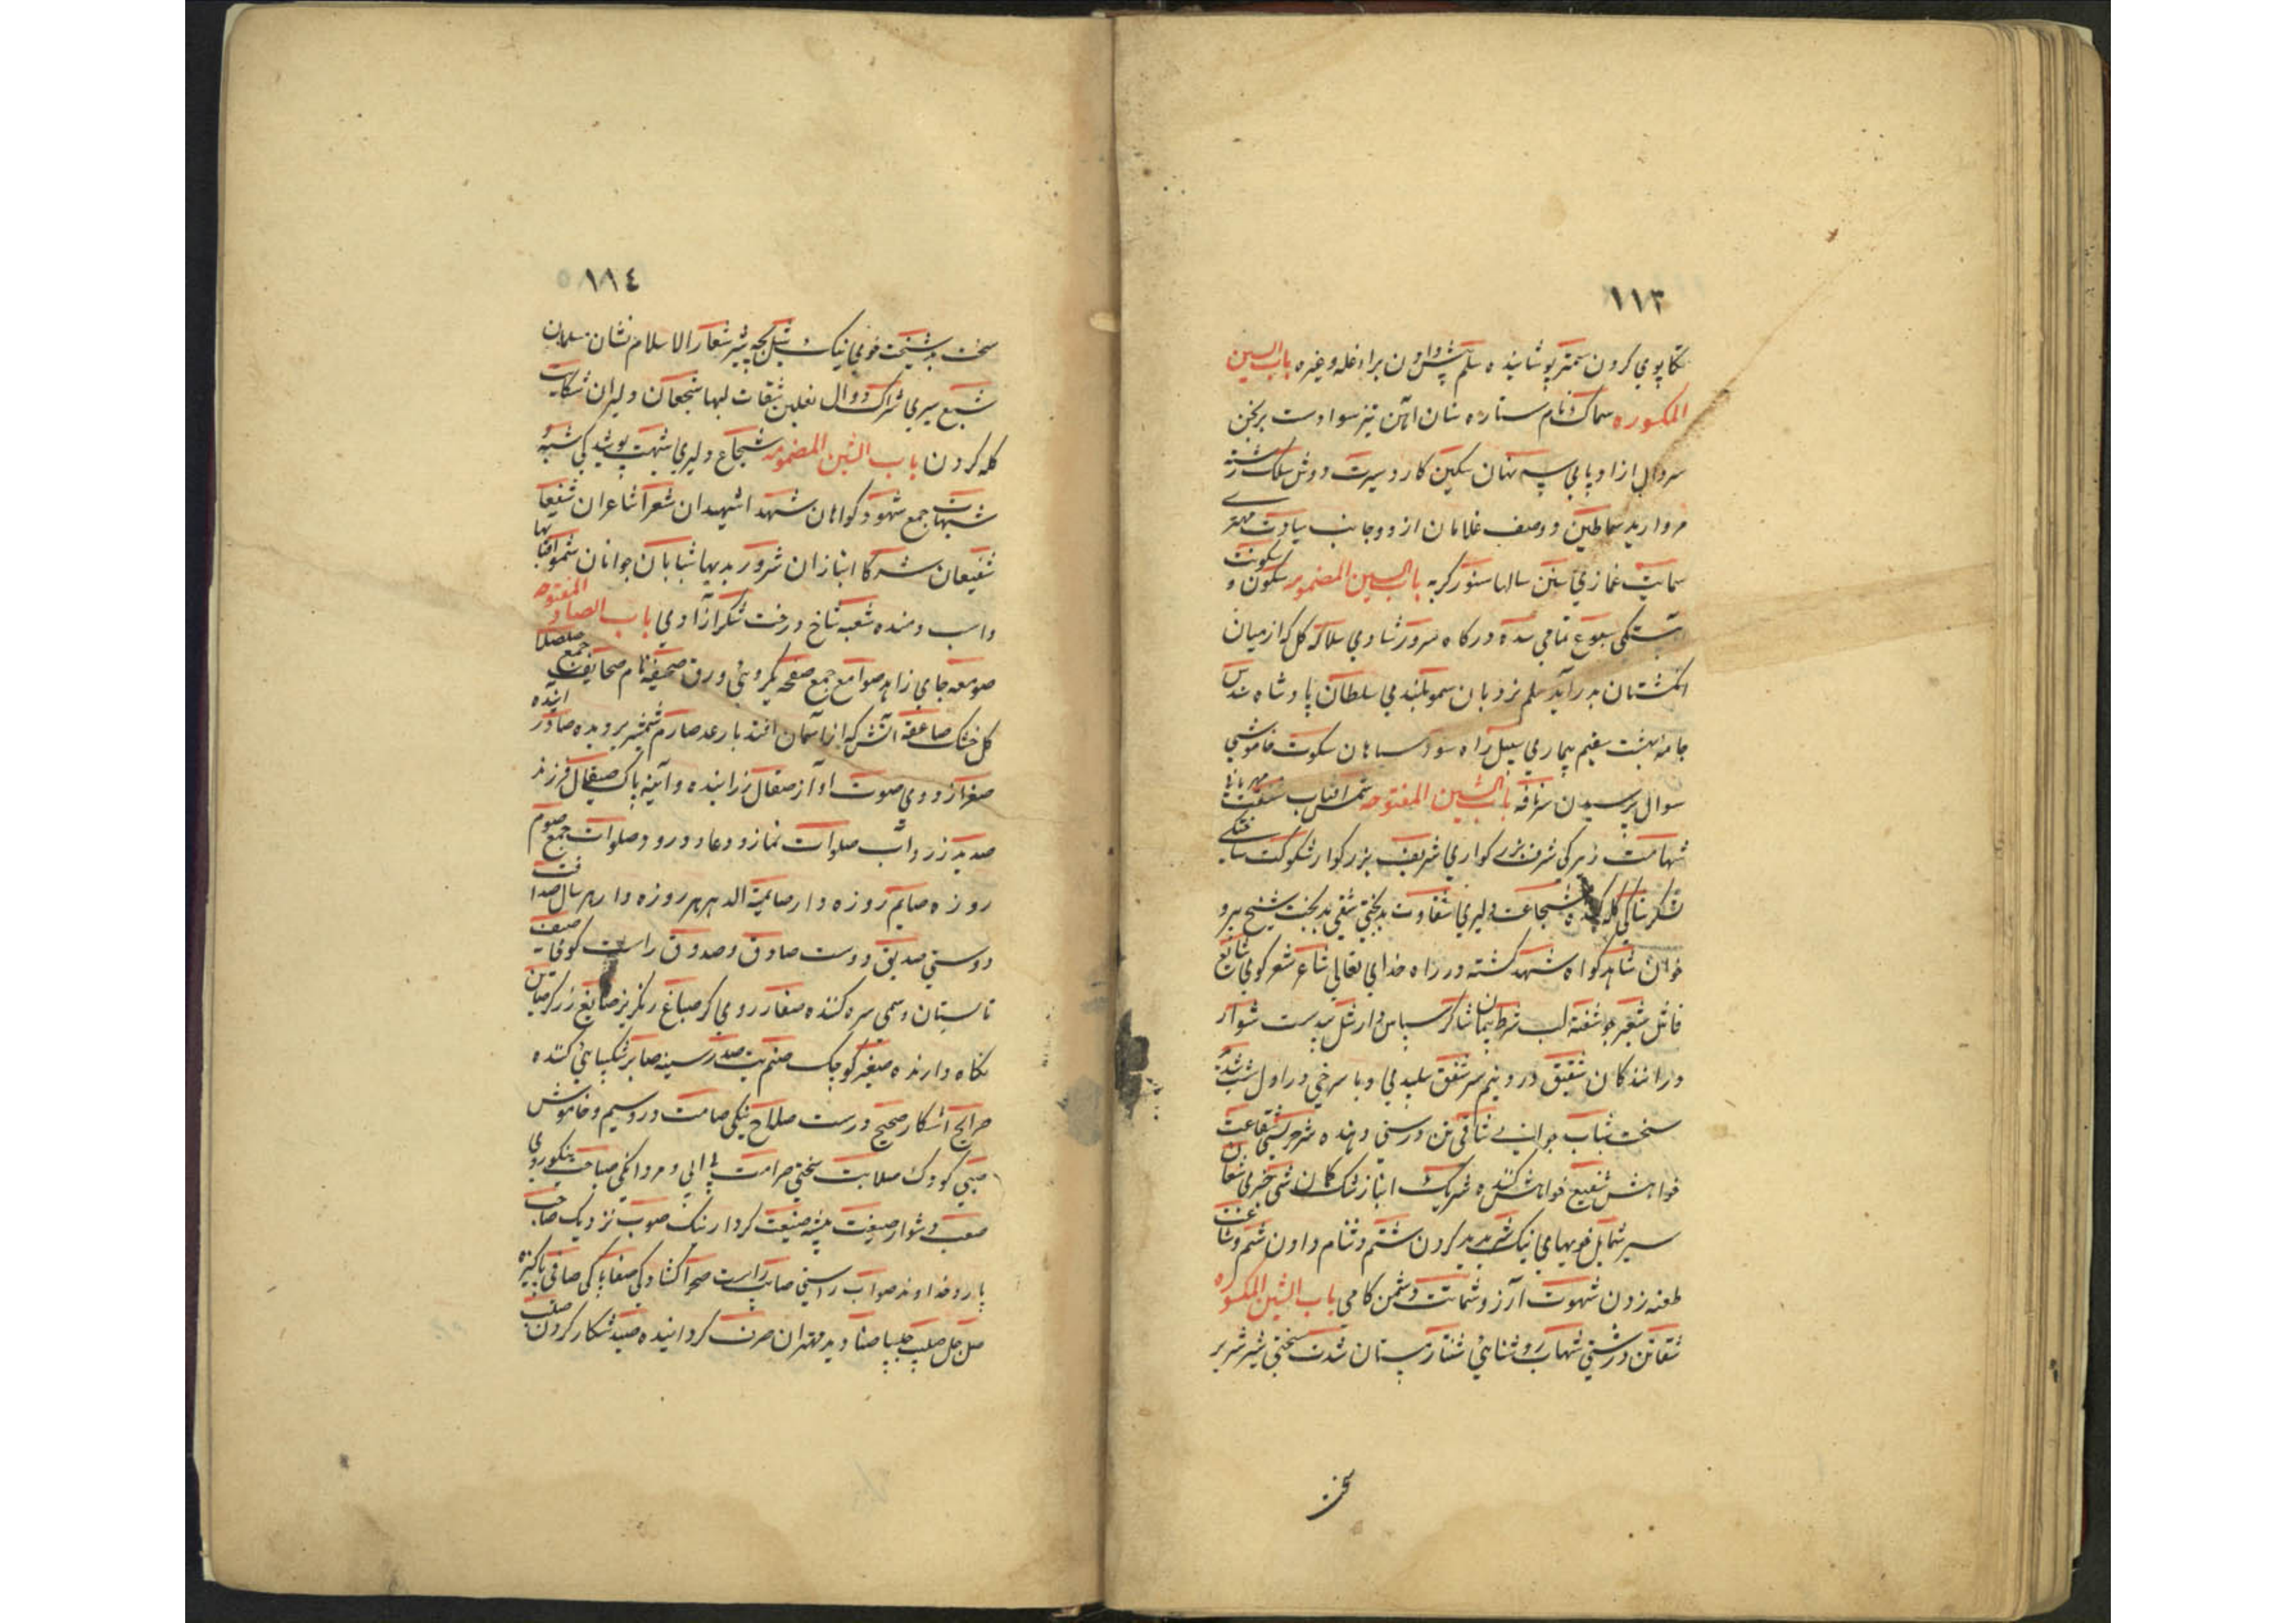 ١١٣
تکاپوی کردن سمتر پوشاننده سلم پیش دادن براء غله وغیره باب السین
المکسوره سماک نام ستاره سنان آهن تیز سوار دست برنجن
سروال ازار و پای سپه نهان سکین کارد سیرت روش سلک رشته
مروارید سماطین دو صف غلامان از دو جانب سیادت مهتری
سمایت غمازی سنین سالها سنور کربه باب السین المضمومه سکون و سکونت
سده درکاه سرور شادی سلاله کل که از میان
انکشتان بدر آید سلم نردبان سمو بلندی سلطان پادشاه سندس
جامه بهشت سقیم بیماری سبیل راه سود سیاهان سکوت خاموشی
سوال پرسیدن باب الشین المفتوحه شمس آفتاب شفقت مهربانی
شهامت زیرکی شرف بزرکواری شریف بزرکوار شوکت
شکر کله کننده شجاعت دلیری شقاوت بدبختی شقی بدبخت شیخ پیر و
خوان شاهد کواه شهید کشته در راه خدای تعالی شاعر شعر کوی شایع
فاش شعیر جو شفه لب شرط پیمان شاکر سپاس دار شل بی دست شوارد
درانندکان شقیق شفق سپیدی و با سرخی در اول شب شدید
سخت شباب جوانی شاق رسنی دهنده شفاعت
خواهش شفیع خواهش کننده شریک انباز شک کمان شی چیزی شبعان
سیر شمایل خویهای نیک شتم دشنام دادن شتم و شناعت
طعنه زدن شهوت آرزو شماتت دشمن کامی باب الشین المکسوره
شقاق درشتی شهاب روشنائی شتا زمستان شدت سختی شیر شریر
سخت
١١٤
سخت بد شیمت خوی نیک شبل بچه شیر شعار الاسلام نشان مسلمان
شبع سیری شراک دوال نعلین شفات لبها شجعان دلیران شکایت
کله کردن باب الشین المضمومه شجاع دلیری شبهت پوشیدکی شبه و
شبهات جمع شهود کواهان شهدا شهیدان شعرا شاعران شفعا
شفیعان شرکا انبازان شرور بدیها شبابان جوانان شموس آفتابها
واسب رمنده شعبه شاخ درخت شکر آزادی باب الصاد المفتوحه
صومعه جای زاهد صوامع جمع صفحه یکروئی ورق صحیفه نام صحایف جمع صلصال
کل خشک صاعقه آتش که از آسمان افتد با رعد صارم شمشیر برنده صادر آینده
صفرا زردی صوت آواز صقال زداینده و آینه پاک صیقل فرزند
صدید زرد آب صلوات نماز و دعا و درود صلوات جمع صوم
روزه صایم روزه دار صایم الدهر هر روزه دار هر سال صداقت
دوستی صدیق دوست صادق و صدوق راست کوی صیف
تابستان سره کننده صفار روی کر صباغ رنکریز صایغ زرکر صاین
نکاه دارنده صغیر کوچک صنم بت صدر سینه صابر شکیبائی کننده
صریح آشکار صحیح درست صلاح نیکی صامت زر و سیم و خاموش
صبی کودک صلابت سختی صرامت و مردانکی صباحت نیکوروی
صعب دشوار صنعت پیشه صنیعت کردار نیک صوب نزدیک صاحب
یار و خداوند صواب راستی صایب راست صحرا کشادکی صفا پاکی صافی پاکیزه
صل جل صلیب چلیپا صنادید مهتران صرف کردانیده صید شکار کردن صلب